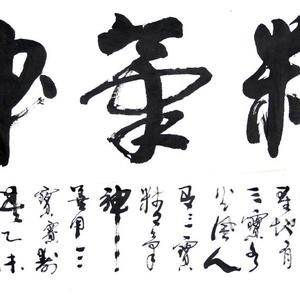 氣
星地有
三寶水
火風人
有三寶
精氣
神
善用三
寶
乙未